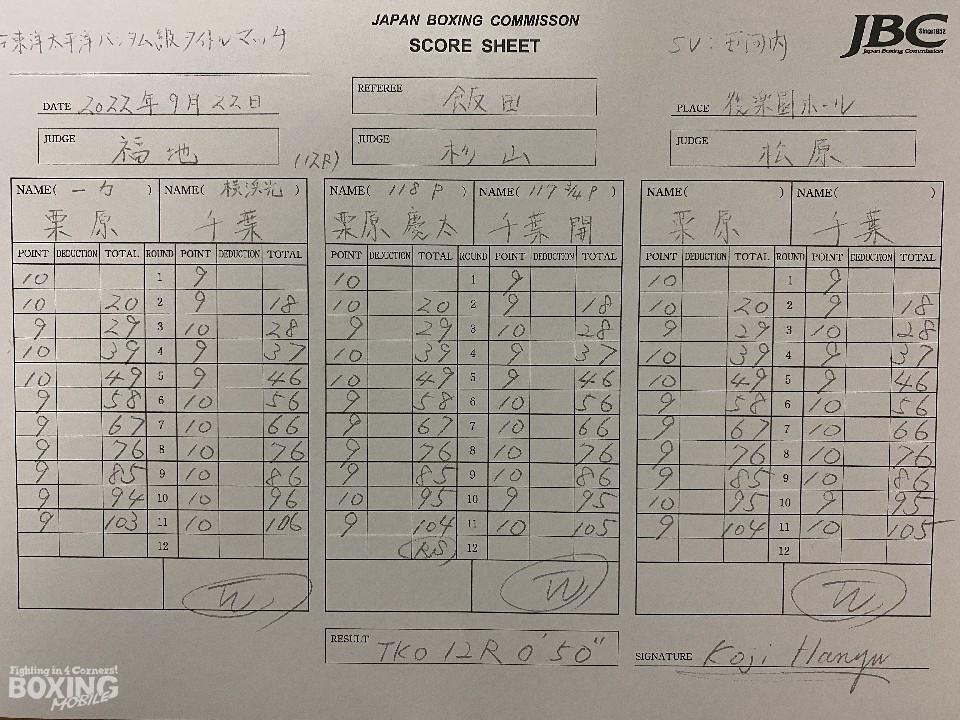 JAPAN BOXING COMMISSON
SCORE SHEET
東洋太平洋バンタム級タイトルマッチ
SV:
JBC Since1952
Japan Boxing Commission
DATE 2022年9月22日
REFEREE 飯田
PLACE 後楽園ホール
JUDGE 福地
(12R)
JUDGE 杉山
JUDGE 松原
NAME( 一力 ) NAME( 横浜光 ) NAME( 118 P ) NAME( 117 3/4 P ) NAME( ) NAME( )
栗原 千葉 栗原 慶太 千葉 開 栗原 千葉
POINT DEDUCTION TOTAL ROUND POINT DEDUCTION TOTAL POINT DEDUCTION TOTAL ROUND POINT DEDUCTION TOTAL POINT DEDUCTION TOTAL ROUND POINT DEDUCTION TOTAL
10 1 9 10 1 9 10 1 9
10 20 2 9 18 10 20 2 9 18 10 20 2 9 18
9 29 3 10 28 9 29 3 10 28 9 29 3 10 28
10 39 4 9 37 10 39 4 9 37 10 39 4 9 37
10 49 5 9 46 10 49 5 9 46 10 49 5 9 46
9 58 6 10 56 9 58 6 10 56 9 58 6 10 56
9 67 7 10 66 9 67 7 10 66 9 67 7 10 66
9 76 8 10 76 9 76 8 10 76 9 76 8 10 76
9 85 9 10 86 9 85 9 10 86 9 85 9 10 86
9 94 10 10 96 10 95 10 9 95 10 95 10 9 95
9 103 11 10 106 9 104 11 10 105 9 104 11 10 105
12 12 12
W W W
RESULT TKO 12R 0'50"
SIGNATURE Koji Hanyu
Fighting in 4 Corners!
BOXING
MOBILE